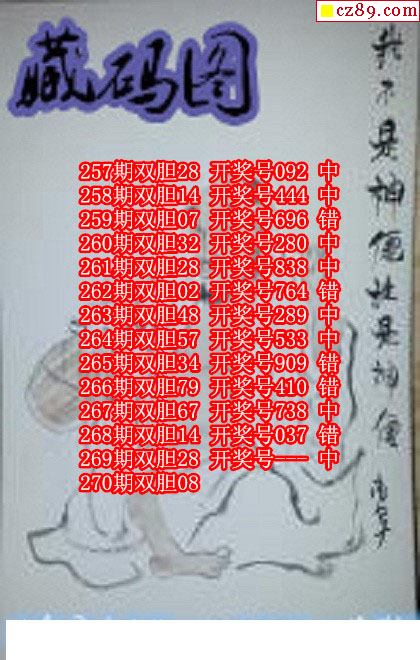 cz89.com
藏码图
257期双胆28 开奖号092 中
258期双胆14 开奖号444 中
259期双胆07 开奖号696 错
260期双胆32 开奖号280 中
261期双胆28 开奖号838 中
262期双胆02 开奖号764 错
263期双胆48 开奖号289 中
264期双胆57 开奖号533 中
265期双胆34 开奖号909 错
266期双胆79 开奖号410 错
267期双胆67 开奖号738 中
268期双胆14 开奖号037 错
269期双胆28 开奖号--- 中
270期双胆08
我不是神
是神